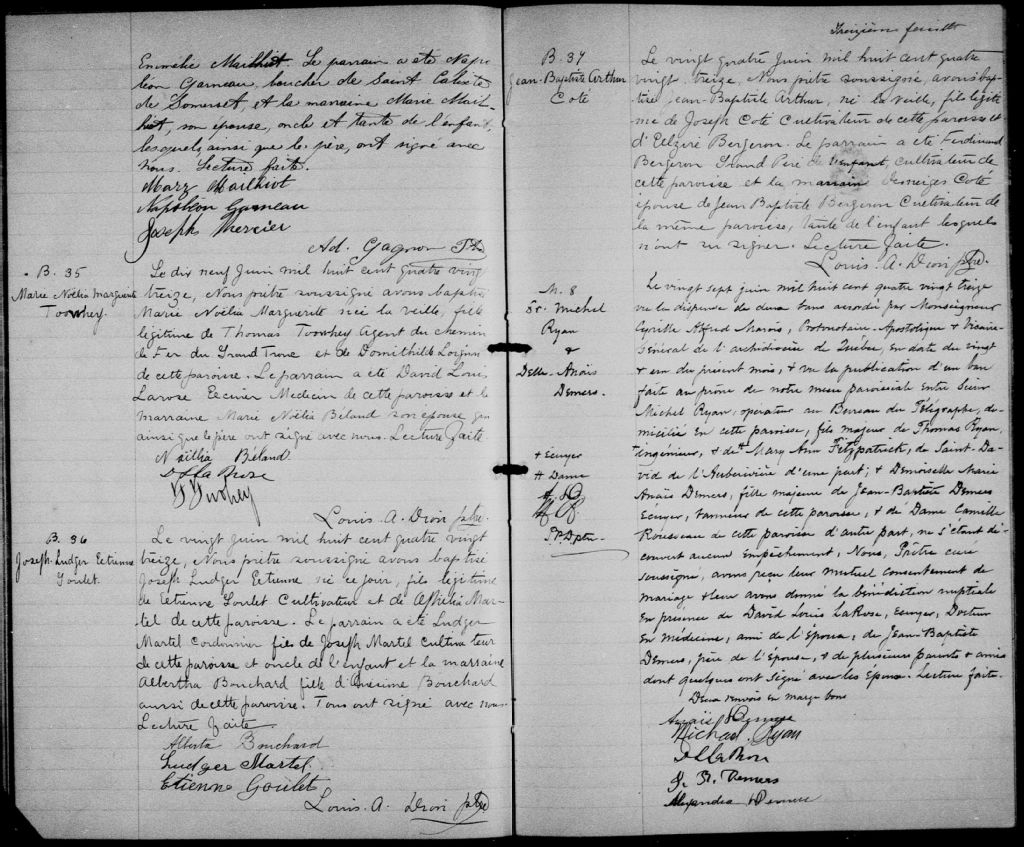 Emmelie Mailhiot. Le parrain a été Napo
léon Garneau, boucher de Saint Calixte
de Somerset, et la marraine Marie Mail-
hiot, son épouse, oncle et tante de l'enfant,
lesquels ainsi que le père, ont signé avec
nous. Lecture faite.
Mary Mailhiot
Napoléon Garneau
Joseph Mercier
Ad. Gagnon Ptre
B. 35
Marie Noëlia Marguerite
Toowhey.
Le dix neuf Juin mil huit cent quatre vingt
treize, Nous prêtre soussigné avons baptisé
Marie Noëlia Marguerite née la veille, fille
légitime de Thomas Toowhey Agent du chemin
de Fer du Grand Tronc et de Domithilde
de cette paroisse. Le parrain a été David Louis
Larose Ecuier Medecin de cette paroisse et la
marraine Marie Noëlia Béland son épouse qui
ainsi que le père ont signé avec nous. Lecture faite
Noëllia Béland
D L LaRose
Louis. A. Dion ptre.
B. 36
Joseph Ludger Eetienne
Goulet.
Le vingt juin mil huit cent quatre vingt
treize, Nous prêtre soussigné avons baptisé
Joseph Ludger Eetienne né ce jour, fils légitime
de Eetienne Goulet Cultivateur et de Ophélia Mar-
tel de cette paroisse. Le parrain a été Ludger
Martel Cordonnier fils de Joseph Martel Cultivateur
de cette paroisse et oncle de l'enfant et la marraine
Albertha Bouchard fille d'Onésime Bouchard
aussi de cette paroisse. Tous ont signé avec nous
Lecture faite
Alberta Bouchard
Ludger Martel
Etienne Goulet
Louis. A. Dion ptre
Treizième feuillet
B. 37
Jean-Baptiste Arthur
Coté
Le vingt quatre Juin mil huit cent quatre
vingt treize. Nous prêtre soussigné avons bap-
tisé Jean-Baptiste Arthur, né la veille, fils légiti-
me de Joseph Coté Cultivateur de cette paroisse et
d'Elzire Bergeron. Le parrain a été Ferdinand
Bergeron Grand Père de l'enfant, cultivateur de
cette paroisse et la marraine Demeizes Coté
épouse de Jean Baptiste Bergeron Cultivateur de
la même paroisse, tante de l'enfant lesquels
n'ont su signer. Lecture faite.
Louis. A. Dion ptre.
M. 8
Sr. Michel
Ryan
&
Delle. Anaïs
Demers.
Le vingt sept juin mil huit cent quatre vingt treize
vu la dispense de deux bans accordée par Monseigneur
Cyrille Alfred Marois, Protonotaire Apostolique & Vicaire
Général de l'archidiocèse de Québec, en date du vingt
& un du présent mois, & vu la publication d'un ban
faite au prône de notre messe paroissiale entre Sieur
Michel Ryan, opérateur au Bureau du Télégraphe, do-
micilié en cette paroisse, fils majeur de Thomas Ryan,
+ ingénieur, & de # Mary Ann Fitzpatrick, de Saint-Da-
vid de l'Auberivière d'une part; & Demoiselle Marie
Anaïs Demers, fille mineure de Jean-Baptiste Demers
Ecuyer, tanneur de cette paroisse, & de Dame Camille
Rousseau de cette paroisse d'autre part, ne s'étant dé-
couvert aucun empêchement, Nous, Prêtre curé
soussigné, avons reçu leur mutuel consentement de
mariage & leur avons donné la bénédiction nuptiale
en présence de David Louis LaRose, Ecuyer, Docteur
en Médecine, ami de l'Epoux, de Jean-Baptiste
Demers, père de l'Epouse, & de plusieurs parents & amis
dont quelques ont signé avec les Epoux. Lecture faite.
Deux renvois en marge bons
+ Ecuyer
# Dame
Anaïs Demers
Michael Ryan
D L LaRose
J. B. Demers
Alexandra Demers